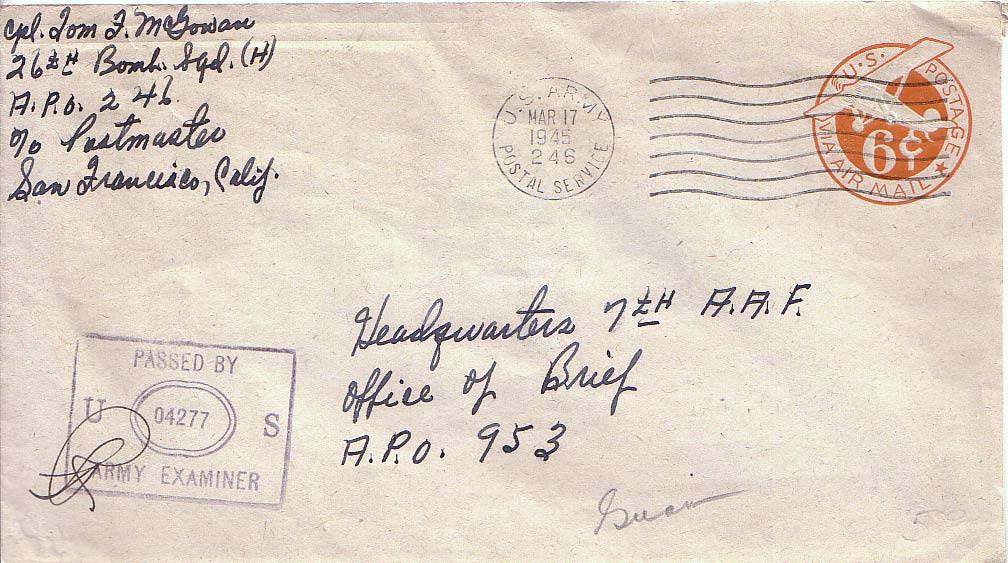 Cpl. Tom F. McGowan
26tH Bomb. Sqd. (H)
A.P.O. 246
c/o Postmaster
San Francisco, Calif.
U.S. ARMY
MAR 17
1945
246
POSTAL SERVICE
U.S. POSTAGE
6¢
VIA AIR MAIL
Headquarters 7tH A.A.F.
Office of Brief
A.P.O. 953
PASSED BY
U 04277 S
ARMY EXAMINER
Guam